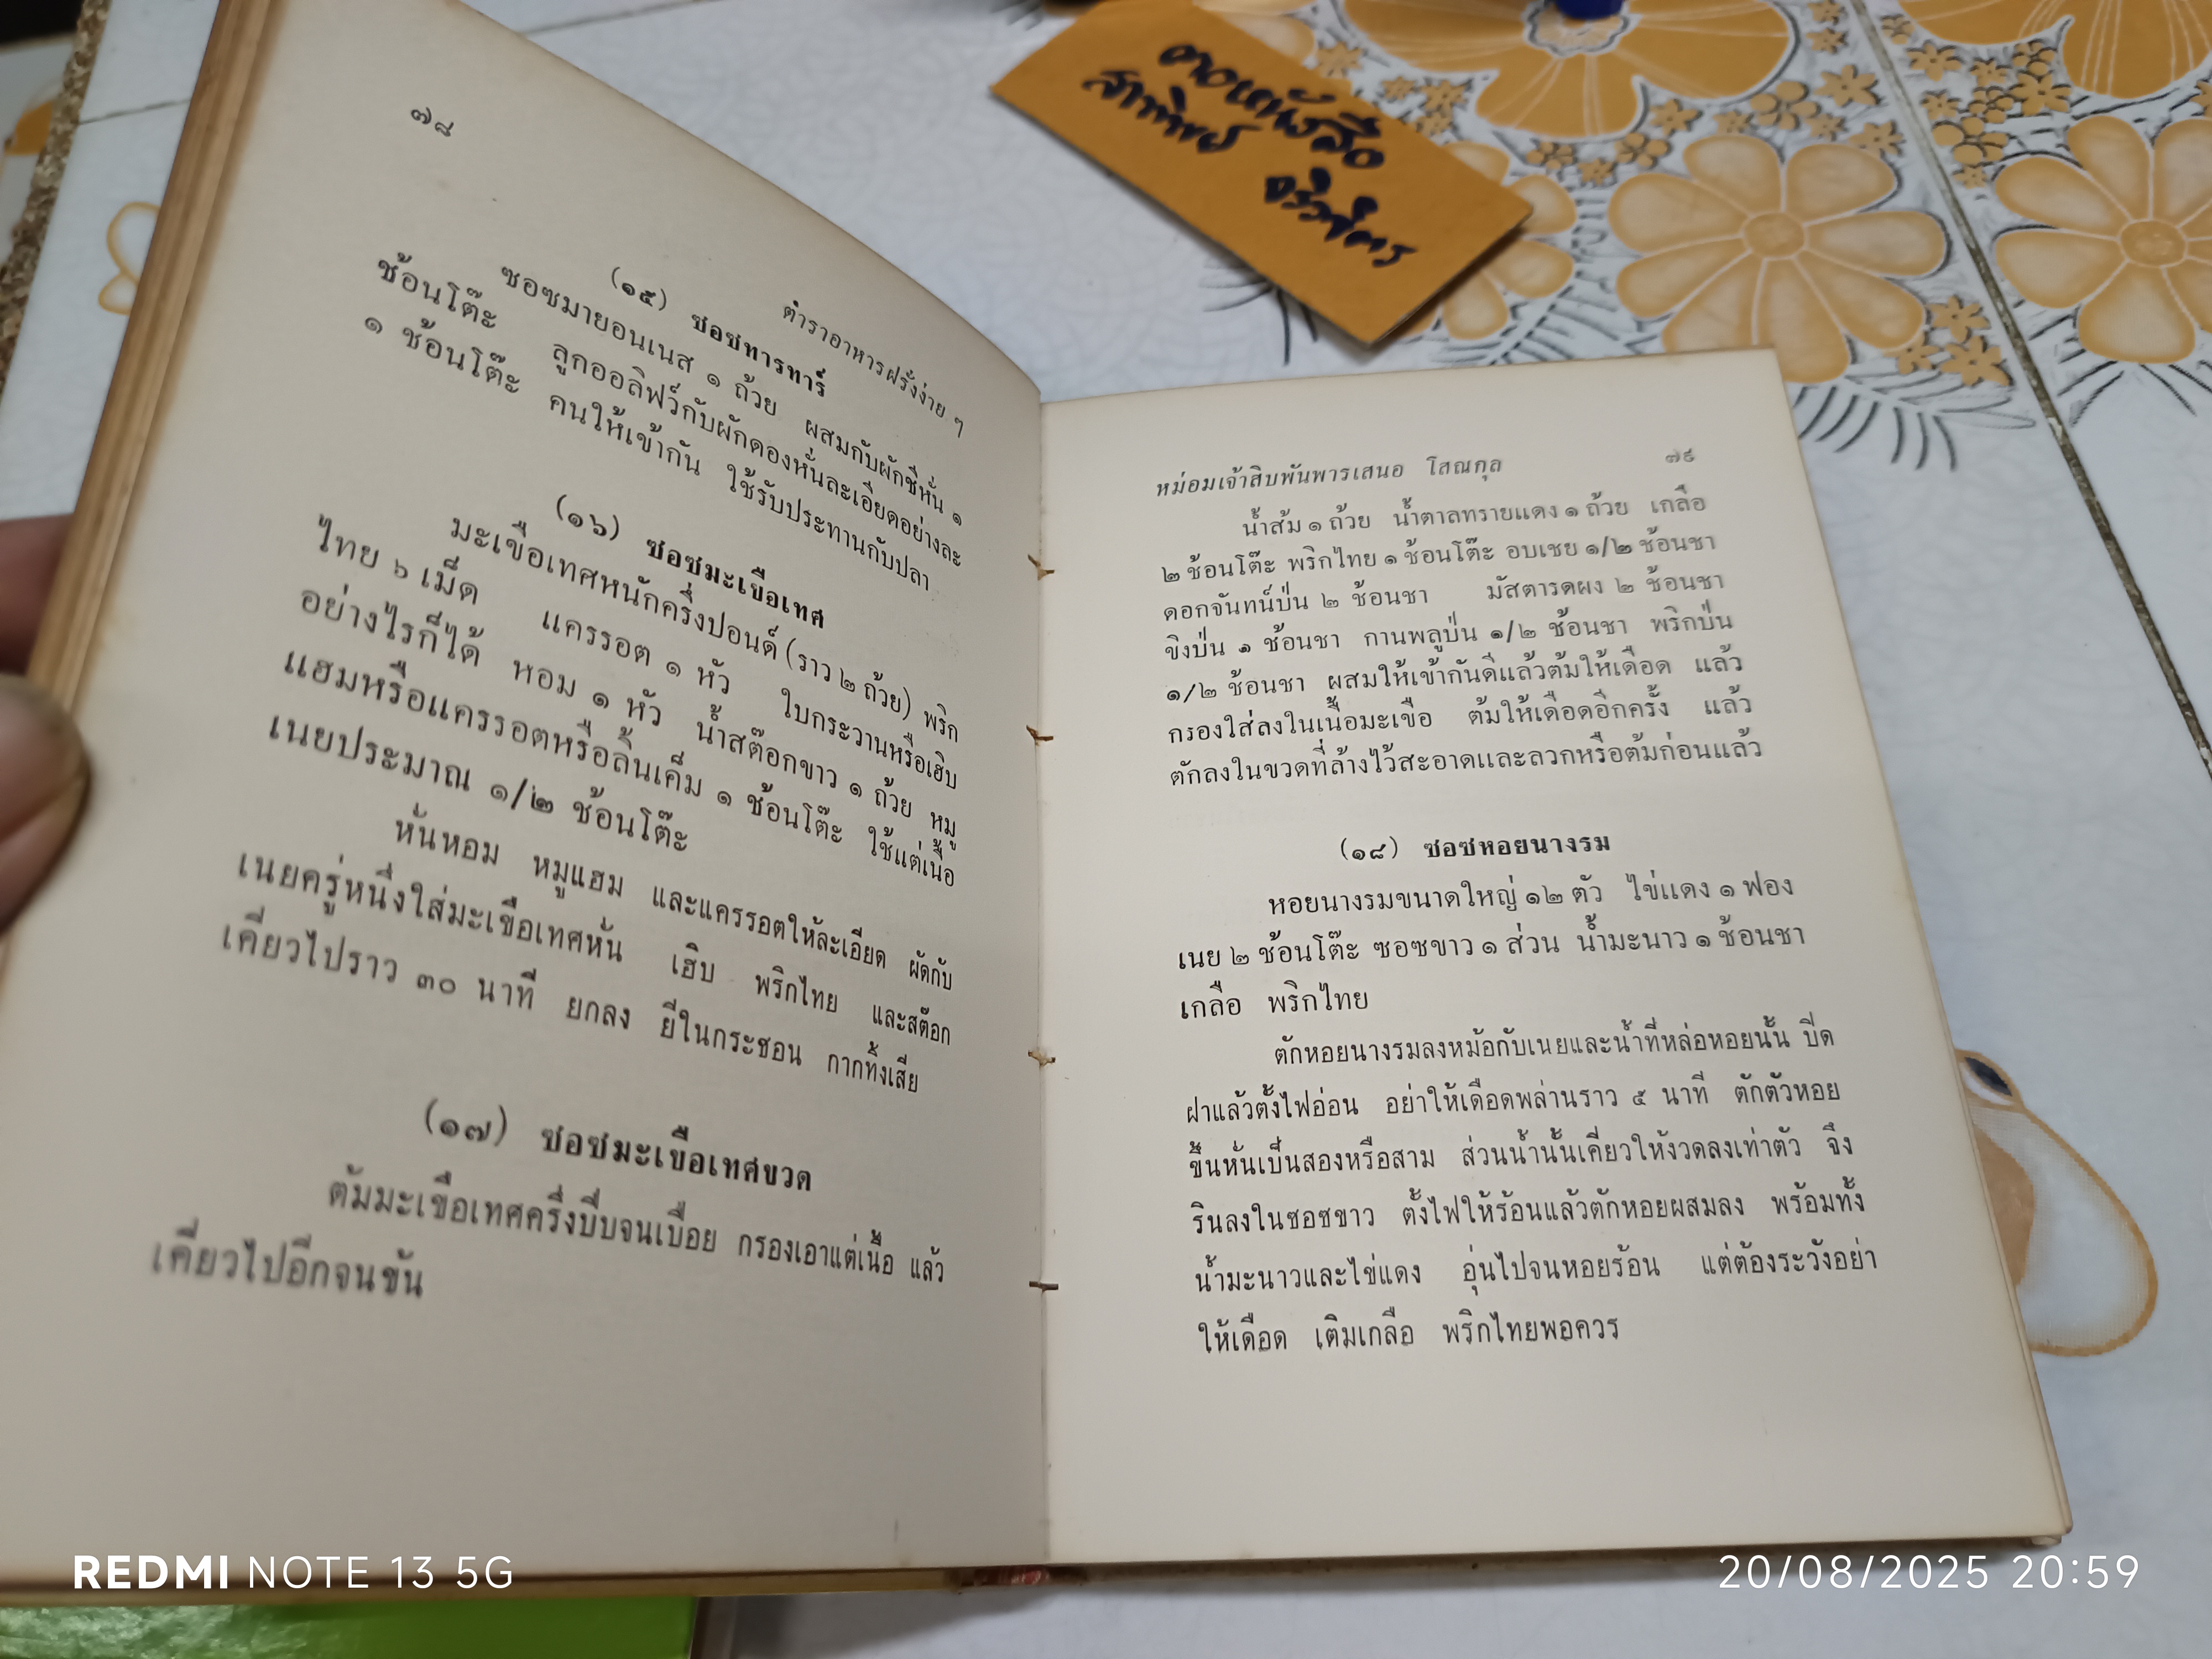 ๗๘
ตำราอาหารฝรั่งง่าย ๆ
(๑๕) ซอซทารทาร์
ซอซมายอนเนส ๑ ถ้วย ผสมกับผักชีหั่น ๑
ช้อนโต๊ะ ลูกออลิฟว์กับผักดองหั่นละเอียดอย่างละ
๑ ช้อนโต๊ะ คนให้เข้ากัน ใช้รับประทานกับปลา
(๑๖) ซอซมะเขือเทศ
มะเขือเทศหนักครึ่งปอนด์ (ราว ๒ ถ้วย) พริก
ไทย ๖ เม็ด แครรอต ๑ หัว ใบกระวานหรือเฮิบ
อย่างไรก็ได้ หอม ๑ หัว น้ำสต๊อกขาว ๑ ถ้วย หมู
แฮมหรือแครรอตหรือลิ้นเค็ม ๑ ช้อนโต๊ะ ใช้แต่เนื้อ
เนยประมาณ ๑/๒ ช้อนโต๊ะ
หั่นหอม หมูแฮม และแครรอตให้ละเอียด ผัดกับ
เนยครู่หนึ่งใส่มะเขือเทศหั่น เฮิบ พริกไทย และสต๊อก
เคี่ยวไปราว ๓๐ นาที ยกลง ยีในกระชอน กากทิ้งเสีย
(๑๗) ซอซมะเขือเทศขวด
ต้มมะเขือเทศครึ่งปี๊บจนเปื่อย กรองเอาแต่เนื้อ แล้ว
เคี่ยวไปอีกจนข้น
หม่อมเจ้าสิบพันพารเสนอ โสณกุล ๗๙
น้ำส้ม ๑ ถ้วย น้ำตาลทรายแดง ๑ ถ้วย เกลือ
๒ ช้อนโต๊ะ พริกไทย ๑ ช้อนโต๊ะ อบเชย ๑/๒ ช้อนชา
ดอกจันทน์ป่น ๒ ช้อนชา มัสตารดผง ๒ ช้อนชา
ขิงป่น ๑ ช้อนชา กานพลูป่น ๑/๒ ช้อนชา พริกป่น
๑/๒ ช้อนชา ผสมให้เข้ากันดีแล้วต้มให้เดือด แล้ว
กรองใส่ลงในเนื้อมะเขือ ต้มให้เดือดอีกครั้ง แล้ว
ตักลงในขวดที่ล้างไว้สะอาดและลวกหรือต้มก่อนแล้ว
(๑๘) ซอซหอยนางรม
หอยนางรมขนาดใหญ่ ๑๒ ตัว ไข่แดง ๑ ฟอง
เนย ๒ ช้อนโต๊ะ ซอซขาว ๑ ส่วน น้ำมะนาว ๑ ช้อนชา
เกลือ พริกไทย
ตักหอยนางรมลงหม้อกับเนยและน้ำที่หล่อหอยนั้น ปิด
ฝาแล้วตั้งไฟอ่อน อย่าให้เดือดพล่านราว ๕ นาที ตักตัวหอย
ขึ้นหั่นเป็นสองหรือสาม ส่วนน้ำนั้นเคี่ยวให้งวดลงเท่าตัว จึง
รินลงในซอซขาว ตั้งไฟให้ร้อนแล้วตักหอยผสมลง พร้อมทั้ง
น้ำมะนาวและไข่แดง อุ่นไปจนหอยร้อน แต่ต้องระวังอย่า
ให้เดือด เติมเกลือ พริกไทยพอควร
REDMI NOTE 13 5G
20/08/2025 20:59